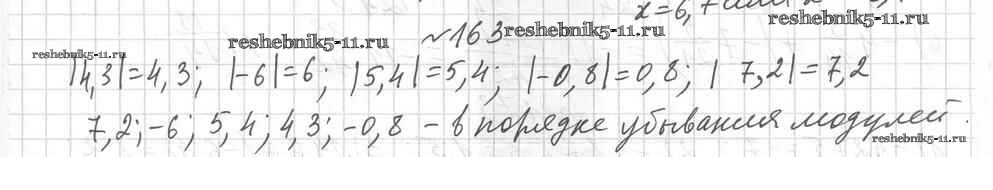 x=6,
reshebnik5-11.ru
reshebnik5-11.ru №163 reshebnik5-11.ru
reshebnik5-11.ru
|4,3|=4,3; |-6|=6; |5,4|=5,4; |-0,8|=0,8; |7,2|=7,2
7,2; -6; 5,4; 4,3; -0,8 - в порядке убывания модулей.
reshebnik5-11.ru